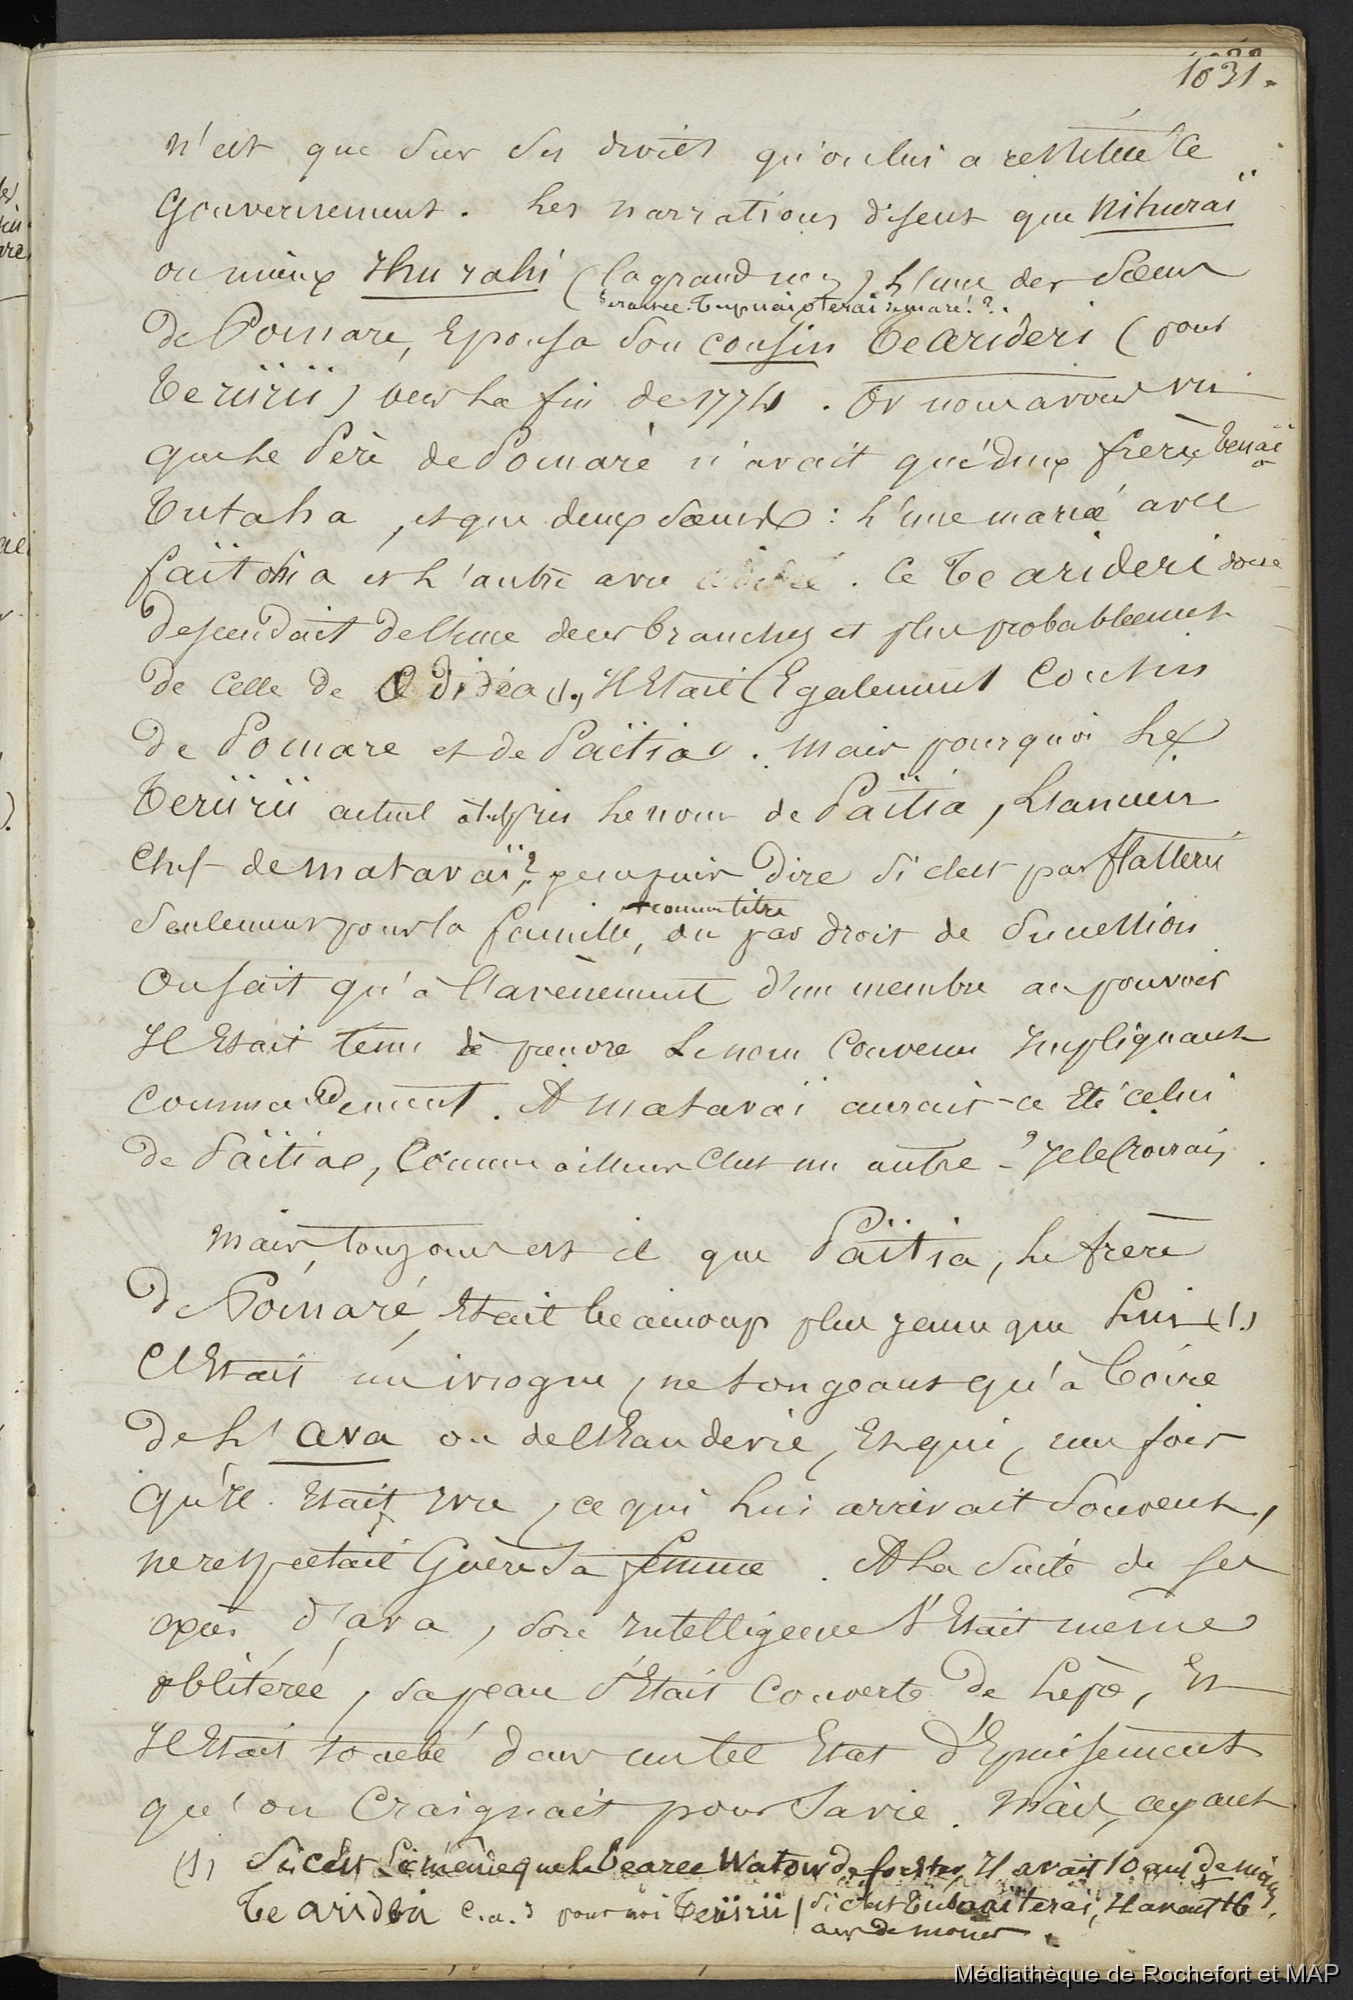 1031.
n'est que sur ses droits qu'on lui a restitué le
Gouvernement. Les narrations disent que Nihuraï
ou mieux Ihu rahi (la grand nez) l'une des Sœurs
de Pomare, Epousa son cousin Tearideri (pour
Teriirii) vers la fin de 1774. Or nous avons vu
que le Père de Pomaré n'avait qu'deux frères
Tutaha, et que deux Sœurs : l'une marié avec
et l'autre avec . Ce Te arideri donc
descendait de l'une deces branches et plus probablement
de celle de O didéa (1., Il Etait Egalement Cousin
de Pomare et de Païtia. Mais pourquoi le
Teriirii actuel le nom de Païtia, l'ancien
Chef de mataraï? je ne puis dire si c'est par flatterie
seulement pour la famille, comme titre ou par droit de Succession
On sait qu'à l'avènement d'un membre au pouvoir
Il Etait tenu de prendre Le nom Convenu Impliquant
Commandement. A mataraï aurait-ce Eté celui
de Païtia, Comme ailleurs C'est un autre -? Je le Croirais.
Mais, toujours est il que Païtia, le frère
de Pomaré, Etait beaucoup plus jeune que Lui (1.)
C'Etait un ivrogne, ne songeant qu'à boire
de L'ava ou de l'Eau de vie, Et qui, une fois
qu'Il Etait Ivre, ce qui Lui arrivait Souvent,
ne respectait Guère Sa femme. A la Suite de ses
excès d'ava, son Intelligence s'Etait même
oblitérée, sa peau s'Etait Couverte de Lèpre, Et
Il Etait tombé dans un tel Etat d'Epuisement
qu'on Craignait pour Sa vie. Mais, ayant
(1) Si c'est Le même que le Tearee Watow de forster, Il avait 10 ans de moins
Te arideri c.a.d pour moi Teriirii / si c'est , Il avait 16
ans de moins.
Médiathèque de Rochefort et MAP